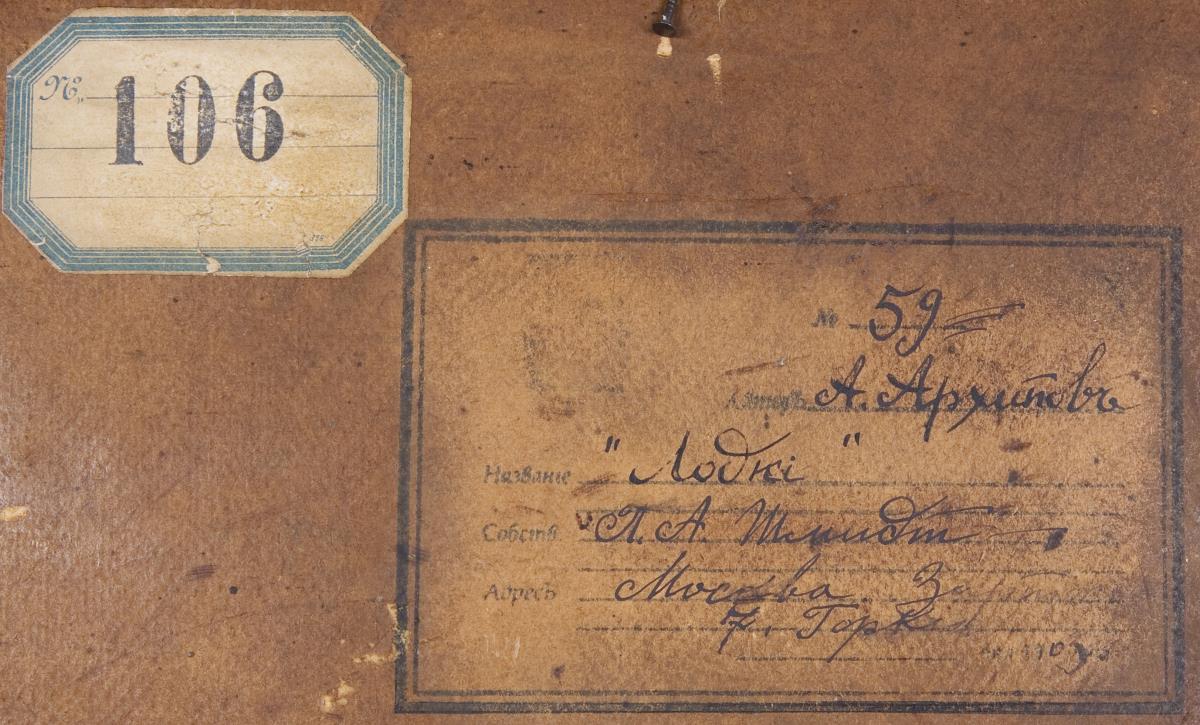 № 106
№ 59
Авторъ А. Архиповъ
Название "Лодкі"
Собств. П. А. Шмидт
Адресъ Москва.
7,